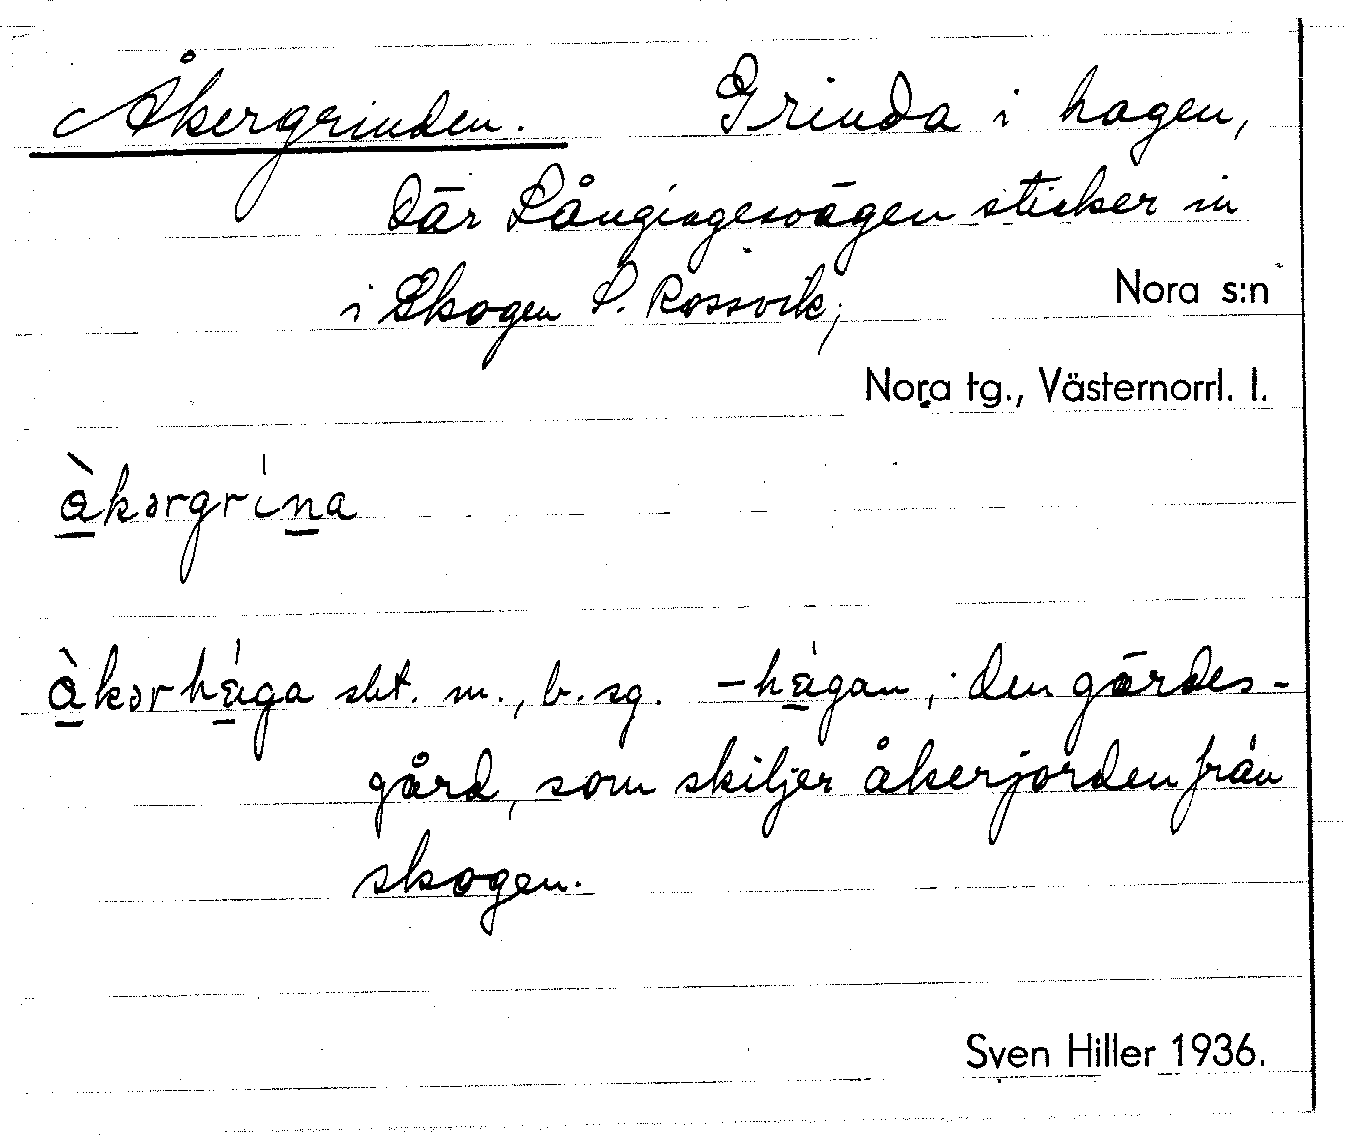 Åkergrinden. Grinda i hagen,
där Långingesvägen sticker in
i Skogen S. Rossvik;
Nora s:n
Nora tg., Västernorrl. l.
àkərgrína
àkərhága sbt. m., b. sg. -hágan; den gärdes-
gård, som skiljer åkerjorden från
skogen.
Sven Hiller 1936.